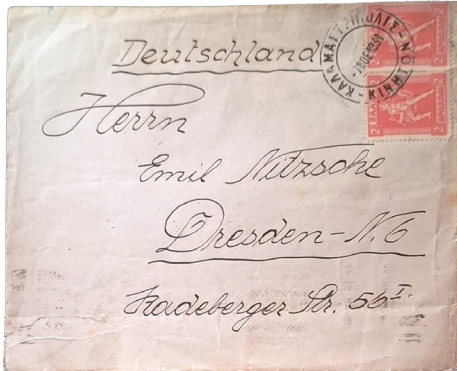 Deutschland
ΕΛΛΑΣ
2 2
Herrn
Emil Nitzsche
Dresden-N. 6
Radeberger Str. 56 I.